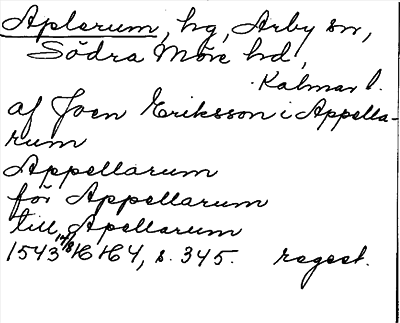 Aplerum, hg, Arby sn,
Södra Möre hd,
Kalmar l.
af Joen Eriksson i Appella-
rum
Appellarum
för Appellarum
till Apellarum
1543 14/8 HH4, s. 345. regest.